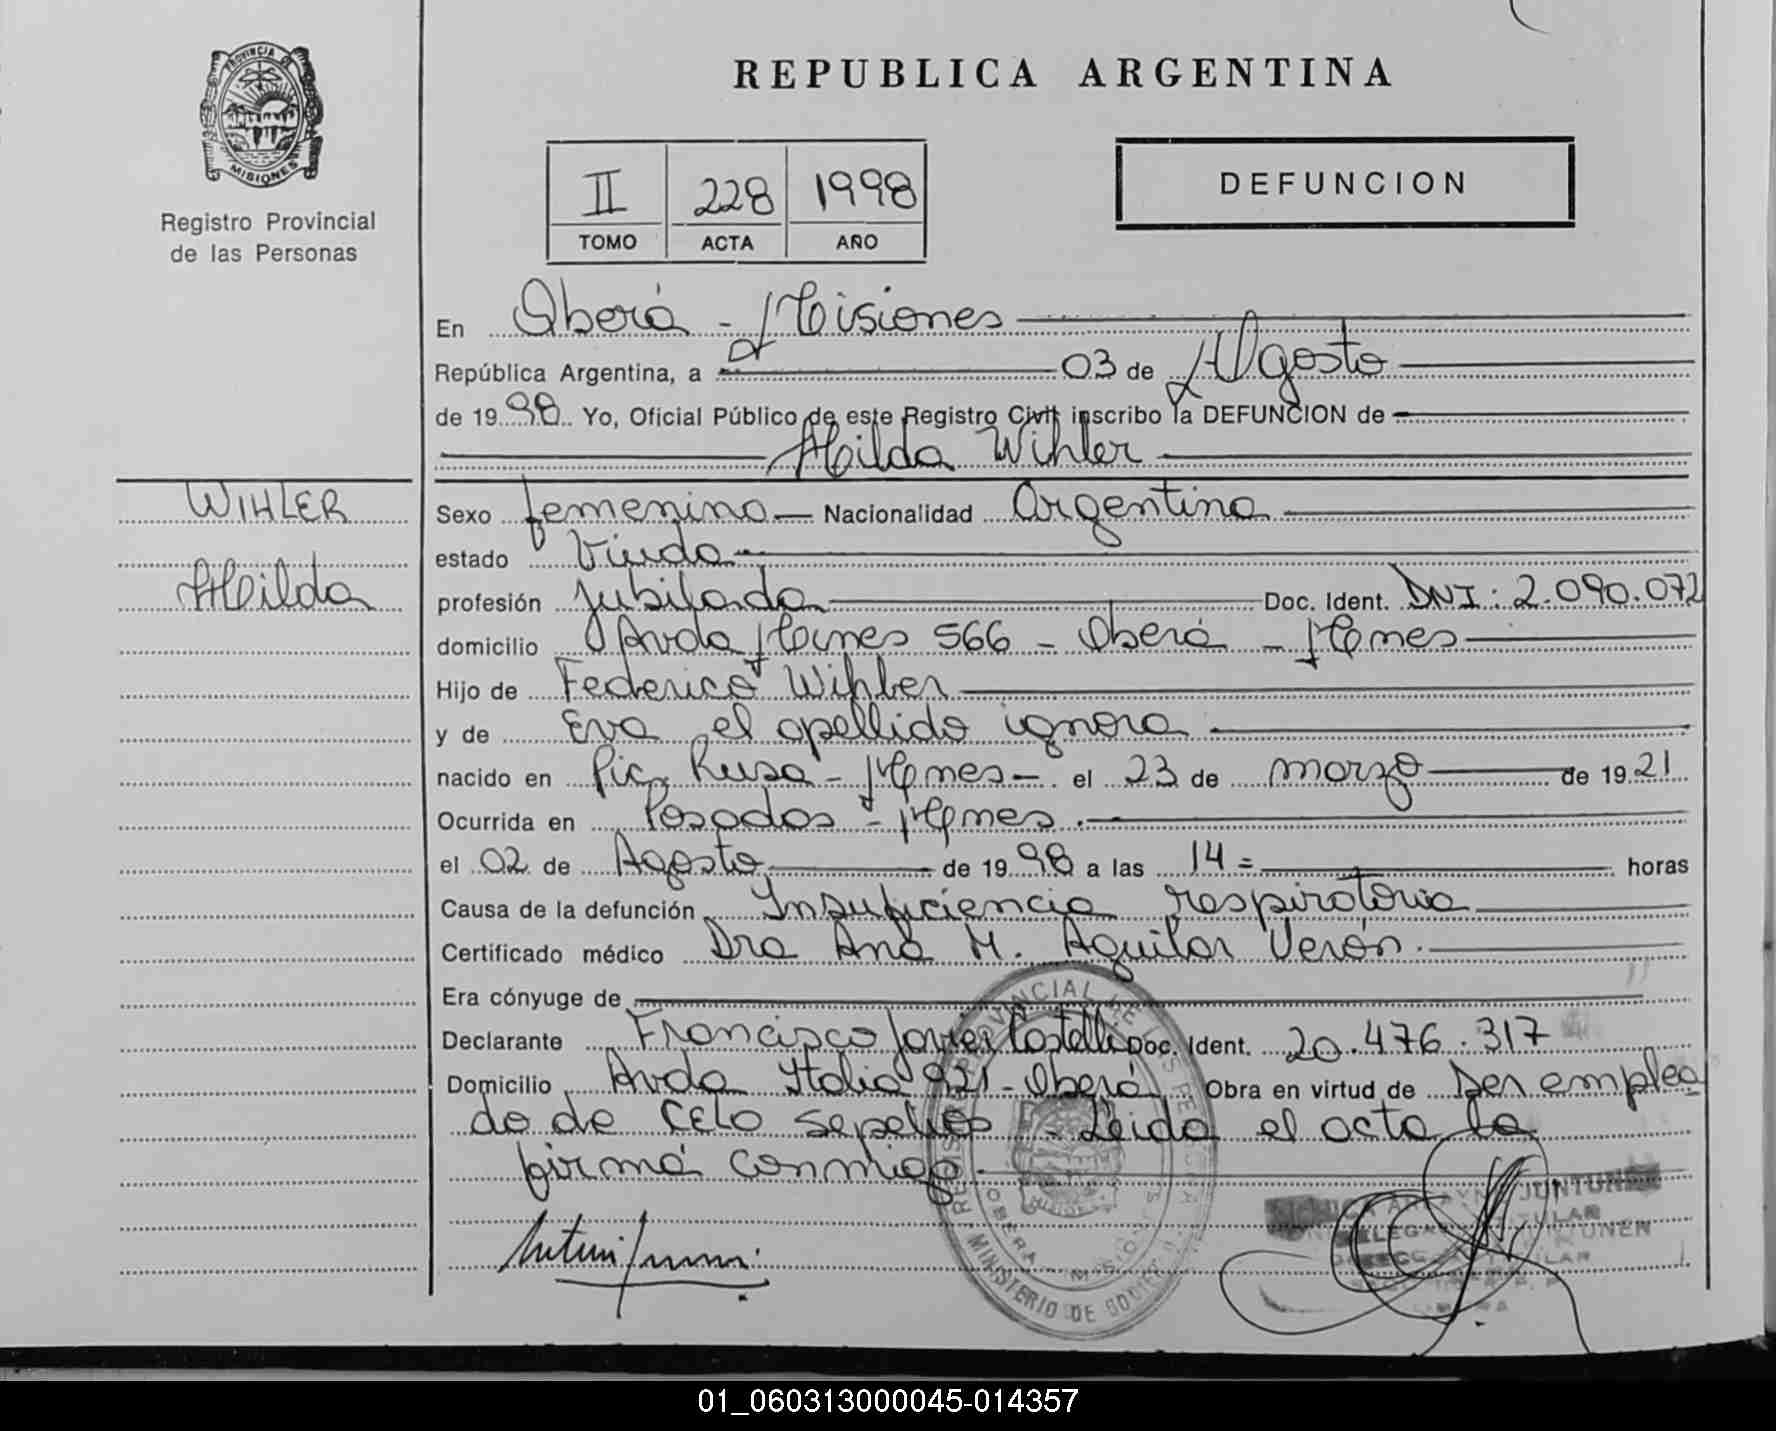 PROVINCIA DE
MISIONES
Registro Provincial
de las Personas
REPUBLICA ARGENTINA
II 228 1998
TOMO ACTA AÑO
DEFUNCION
En Oberá - Misiones
República Argentina, a 03 de Agosto
de 19 98 Yo, Oficial Público de este Registro Civil inscribo la DEFUNCION de
Hilda Wihler
WIHLER
Hilda
Sexo femenino Nacionalidad Argentina
estado Viuda
profesión Jubilada Doc. Ident. DNI: 2.090.072
domicilio Avda Mnes 566 - Oberá - Mnes
Hijo de Federico Wihler
y de Eva el apellido ignora
nacido en Pic. Rusa - Mnes - el 23 de marzo de 19 21
Ocurrida en Posadas - Mnes.
el 02 de Agosto de 19 98 a las 14 = horas
Causa de la defunción Insuficiencia respiratoria
Certificado médico Dra Ana M. Aguilar Verón.
Era cónyuge de
Declarante Francisco Javier Costelli Doc. Ident. 20.476.317
Domicilio Avda Italia 921 - Oberá Obra en virtud de Ser emplea
do de CELO sepelios - Leida el acta la
firma conmigo -
OBERA - MISIONES
MINISTERIO DE
JUNTUNEN
01_060313000045-014357